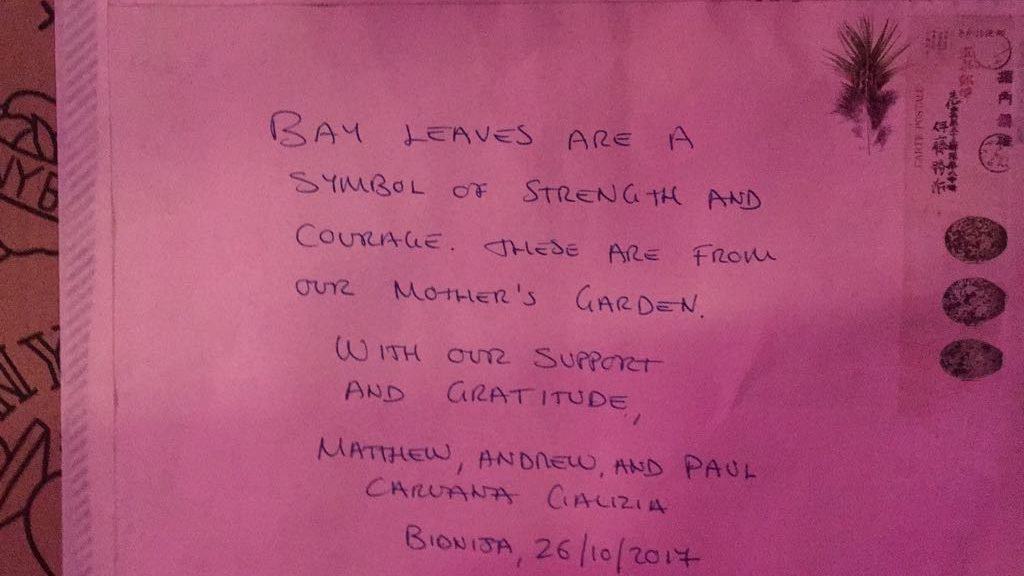 BAY LEAVES ARE A
SYMBOL OF STRENGTH AND
COURAGE. THESE ARE FROM
OUR MOTHER'S GARDEN.
WITH OUR SUPPORT
AND GRATITUDE,
MATTHEW, ANDREW, AND PAUL
CARUANA GALIZIA
BIDNIJA, 26/10/2017
CARTE POSTALE